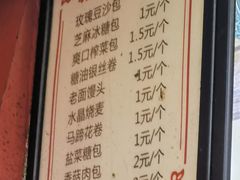 玫瑰豆沙包 1元/个
芝麻冰糖包 1.5元/个
爽口榨菜包 1.5元/个
糖油银丝卷 1元/个
老面馒头 1元/个
水晶烧麦 1元/个
马蹄花卷 1元/个
盐菜糖包 2元/个
香菇肉包 2元/个